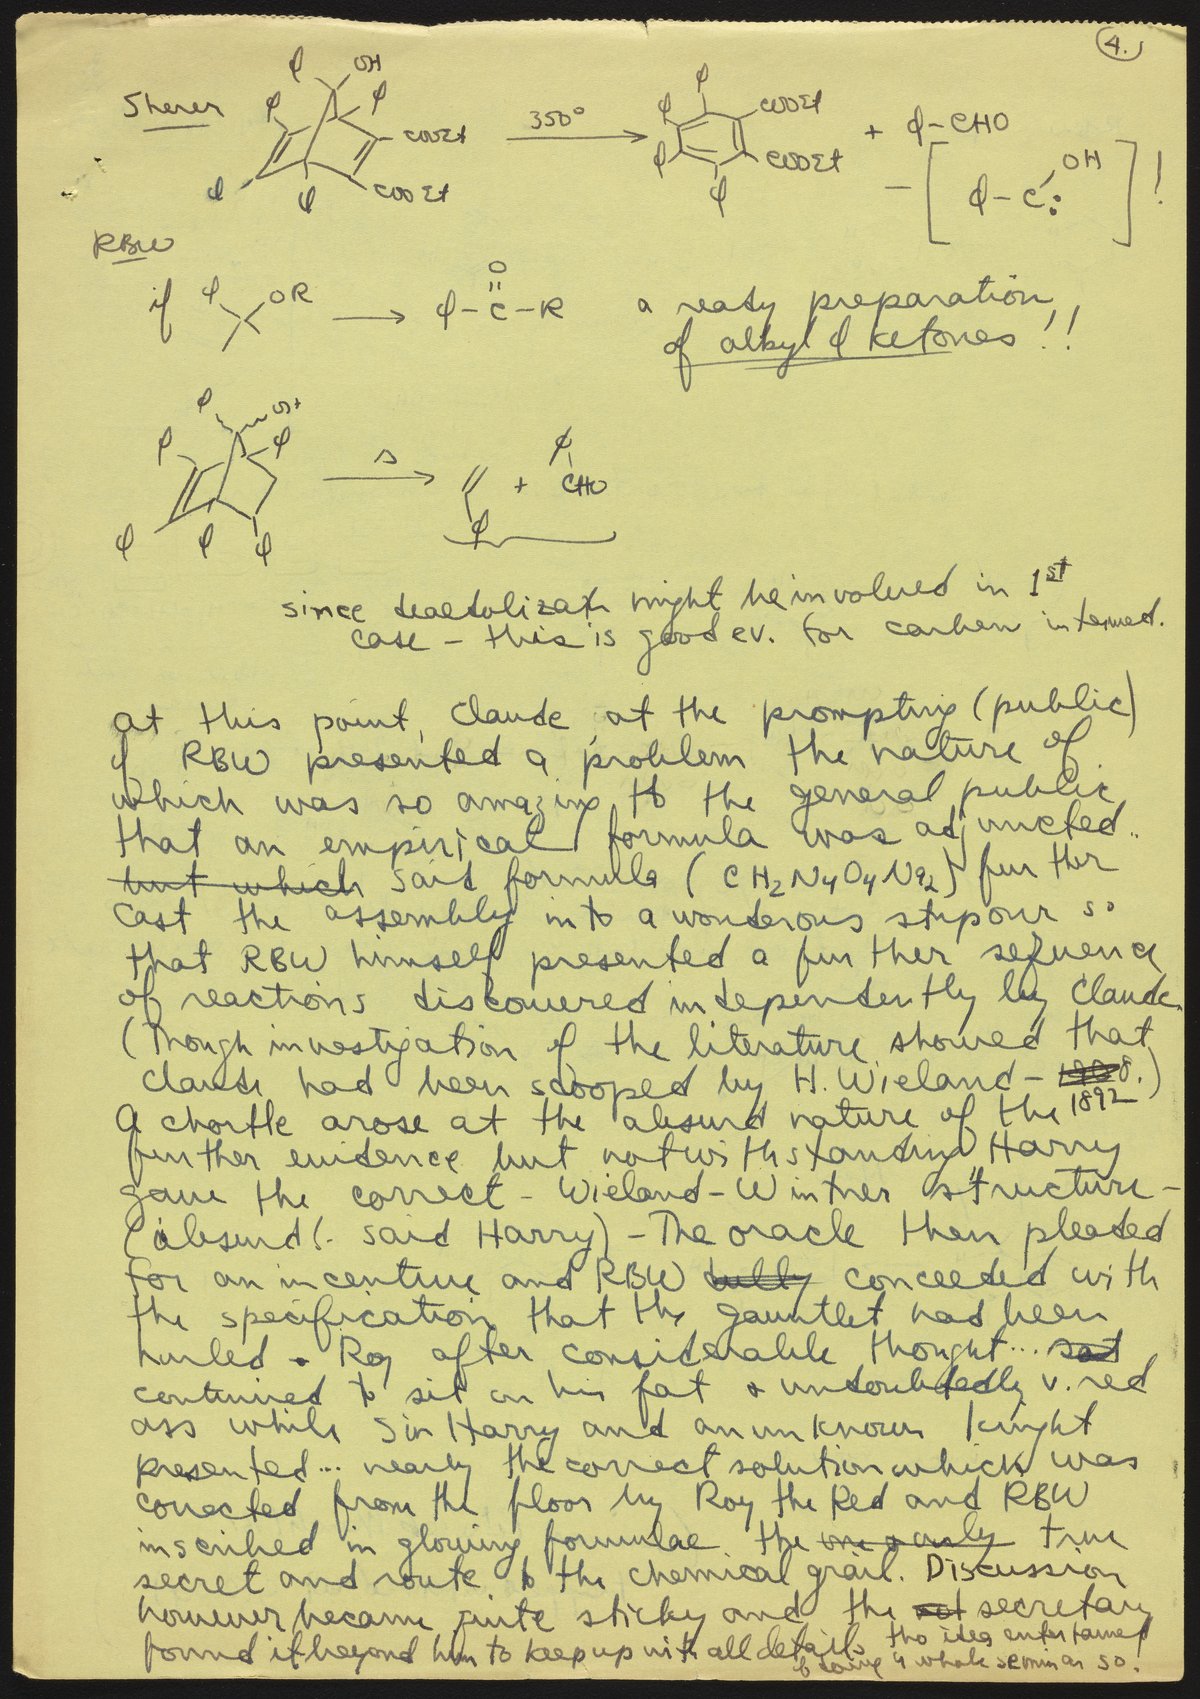 4.
Sherer
φ OH
φ φ
COOEt
φ φ COOEt
350°
φ φ COOEt
φ φ COOEt
+ φ-CHO
- [ φ-C: OH ] !
RBW
if φ OR → φ-C-R a ready preparation
O
of alkyl φ ketones!!
φ OH
φ φ
φ φ φ
Δ
φ + φ CHO
since dealdolizatn might be involved in 1st
case - this is good ev. for carben intermed.
At this point, Claude, at the prompting (public)
of RBW presented a problem the nature of
which was so amazing to the general public
that an empirical formula was adjuncted..
but which said formula (CH2N4O4Na2) further
cast the assembly into a wonderous stupour so
that RBW himself presented a further sequence
of reactions discovered independently by Claude.
(Though investigation of the literature showed that
Claude had been scooped by H. Wieland - 1908.)
1892
A chortle arose at the absurd nature of the
further evidence but notwithstanding Harry
gave the correct - Wieland-Wintner structure -
(absurd! - said Harry) - The oracle then pleaded
for an incentive and RBW conceeded with
the specification that the gauntlet had been
hurled. Roy after considerable thought... sat
continued to sit on his fat & undoubtedly v. red
ass while Sir Harry and an unknown knight
presented... nearly the correct solution which was
corrected from the floor by Roy the Red and RBW
inscribed in glowing formulae the one & only true
secret and route to the chemical grail. Discussion
however became quite sticky and the secretary
found it beyond him to keep up with all details tho idea entertained
of doing a whole seminar so!